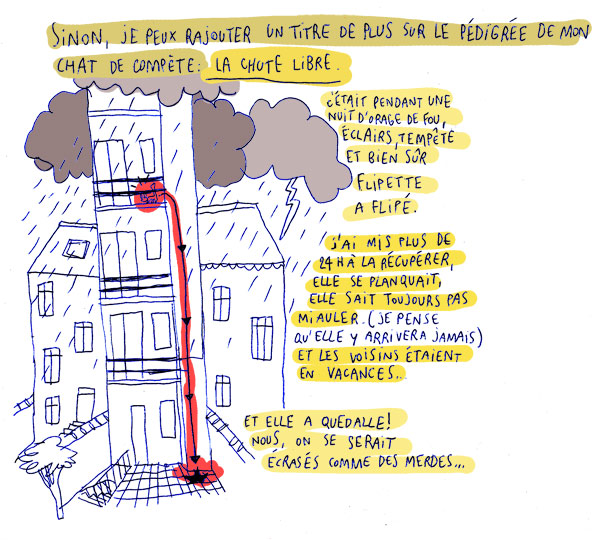 SINON, JE PEUX RAJOUTER UN TITRE DE PLUS SUR LE PÉDIGRÉE DE MON
CHAT DE COMPÈTE: LA CHUTE LIBRE.
C'ÉTAIT PENDANT UNE
NUIT D'ORAGE DE FOU,
ÉCLAIRS, TEMPÊTE
ET BIEN SÛR
FLIPETTE
A FLIPÉ.
J'AI MIS PLUS DE
24H À LA RÉCUPÉRER,
ELLE SE PLANQUAIT,
ELLE SAIT TOUJOURS PAS
MIAULER. (JE PENSE
QU'ELLE Y ARRIVERA JAMAIS)
ET LES VOISINS ÉTAIENT
EN VACANCES..
ET ELLE A QUEDALLE!
NOUS, ON SE SERAIT
ÉCRASÉS COMME DES MERDES...